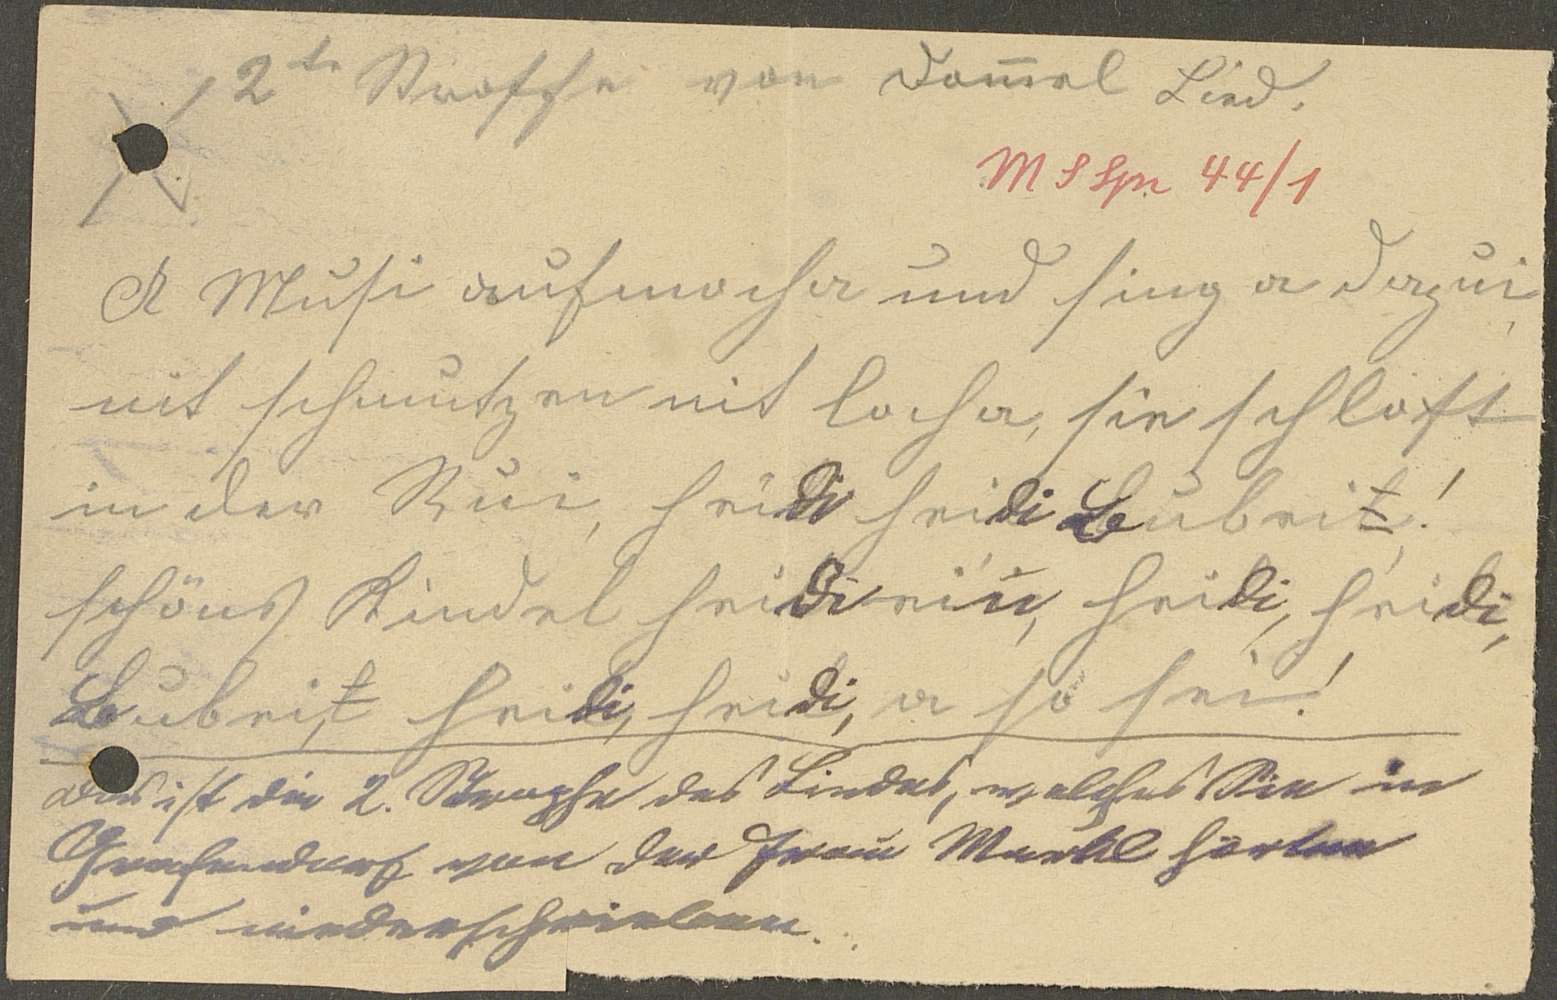 2te Stroffe von Dom̅el Lied.
MS Spr 44/1
A Musi aufmocha und sing a dazui,
nit schmutzen nit locha, sie schloft
in der Rui, heidi heidi Bubeit!
schöns Kindel heidi ein, heidi, heidi,
Bubeit heidi, heidi, a so sei!
Das ist die 2. Strophe des Liedes, welches Sie in
Grafendorf von der Frau Markl hörten
und niederschrieben.